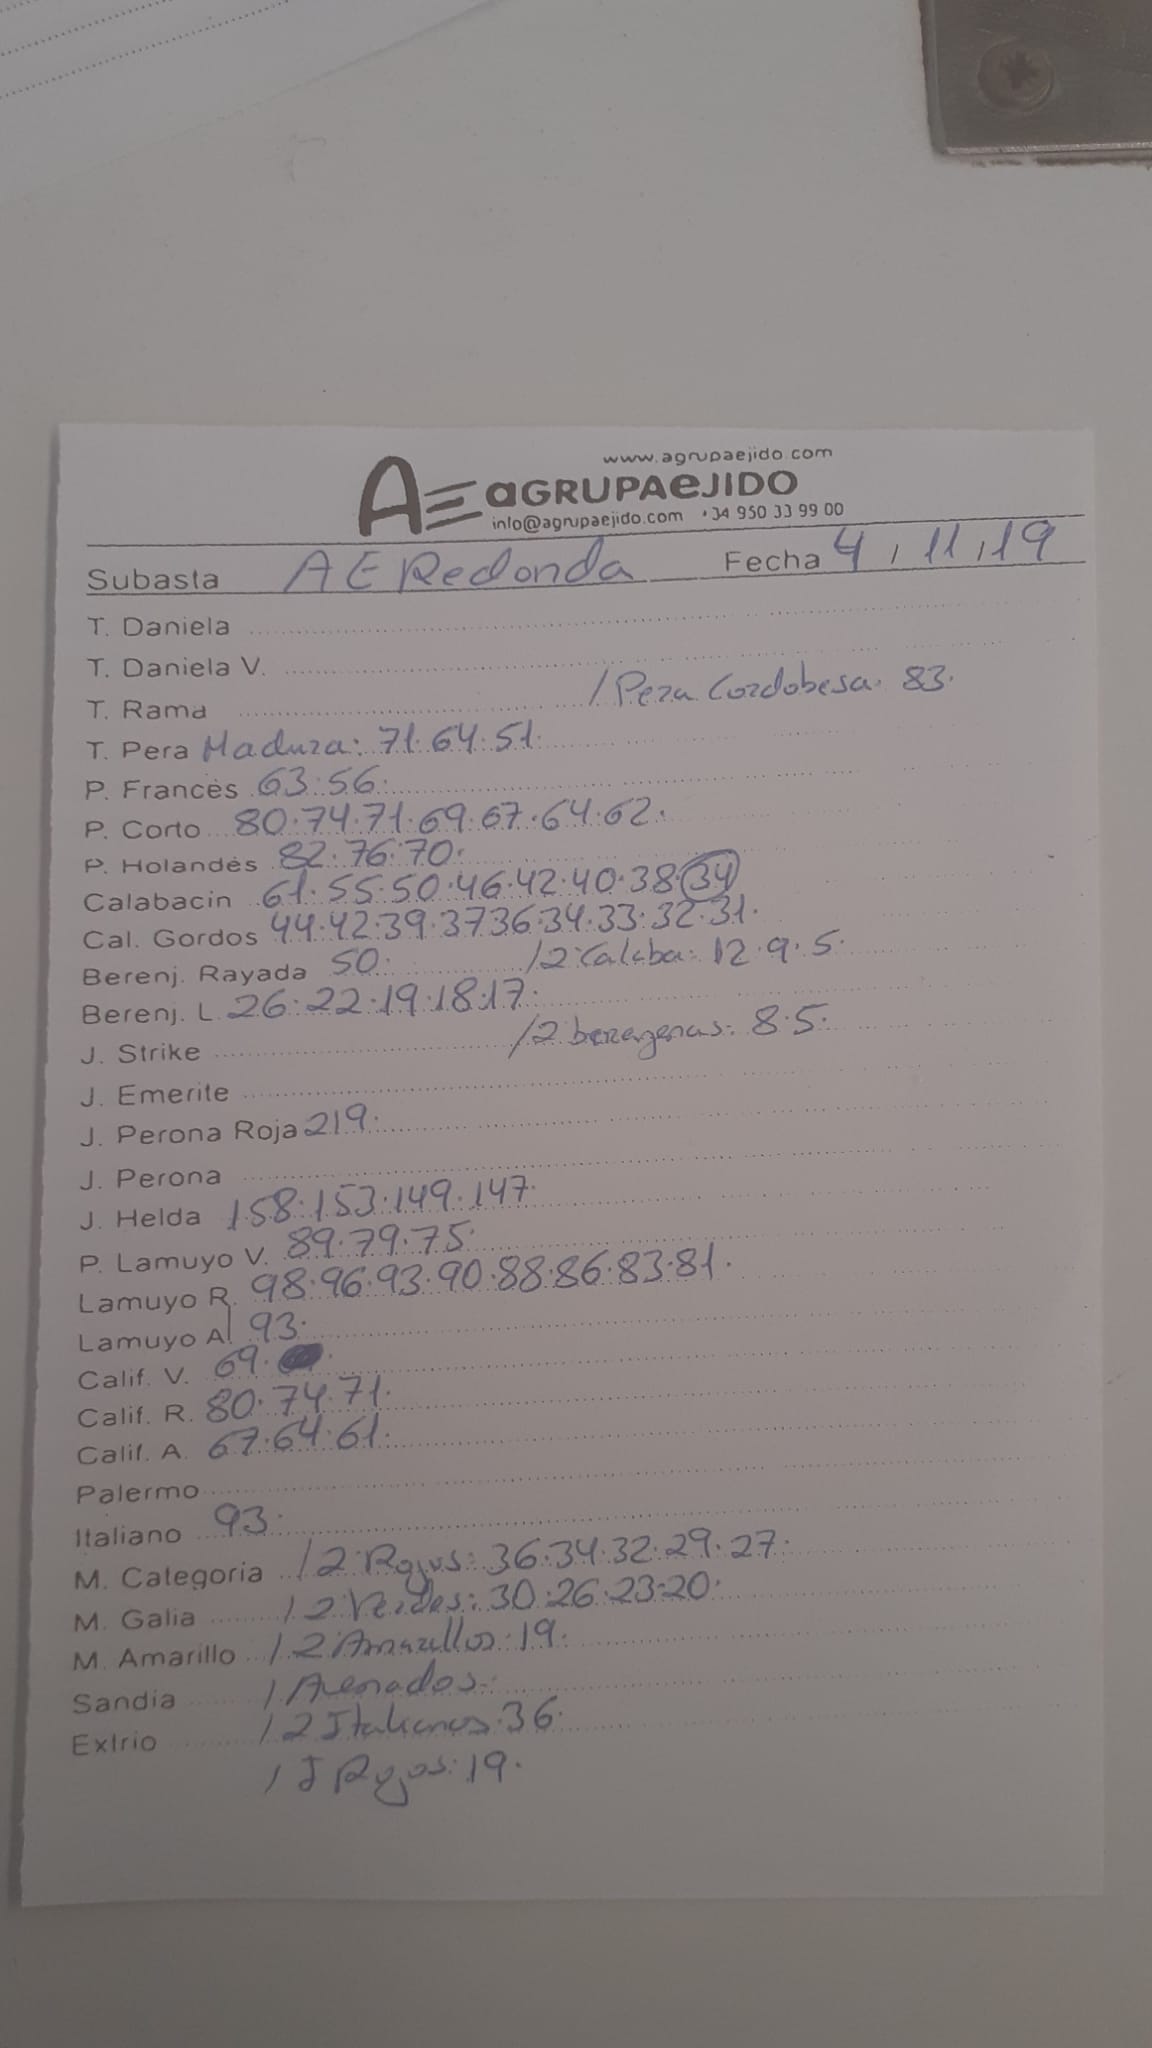 www.agrupaejido.com
AE aGRUPAeJIDO
info@agrupaejido.com +34 950 33 99 00
Subasta AE Redonda Fecha 4, 11, 19
T. Daniela
T. Daniela V.
T. Rama / Pera Cordobesa. 83.
T. Pera Madura: 71. 64. 51.
P. Francès 63. 56.
P. Corto 80. 74. 71. 69. 67. 64. 62.
P. Holandès 82. 76. 70.
Calabacin 61. 55. 50. 46. 42. 40. 38. 34
Cal. Gordos 44. 42. 39. 37 36. 34. 33. 32. 31.
Berenj. Rayada 50. / 2 Calaba: 12. 9. 5.
Berenj. L. 26. 22. 19. 18. 17.
J. Strike / 2 berengenas: 8. 5.
J. Emerite
J. Perona Roja 219.
J. Perona
J. Helda 158. 153. 149. 147.
P. Lamuyo V. 89. 79. 75.
Lamuyo R. 98. 96. 93. 90. 88. 86. 83. 81.
Lamuyo A. 93.
Calif. V. 69.
Calif. R. 80. 74. 71.
Calif. A. 67. 64. 61.
Palermo
Italiano 93.
M. Categoria / 2 Rojos: 36. 34. 32. 29. 27.
M. Galia / 2 Verdes: 30. 26. 23. 20.
M. Amarillo / 2 Amarillos: 19.
Sandia / Asenados.
Extrio / 2 Italianos. 36.
/ J Rojos: 19.